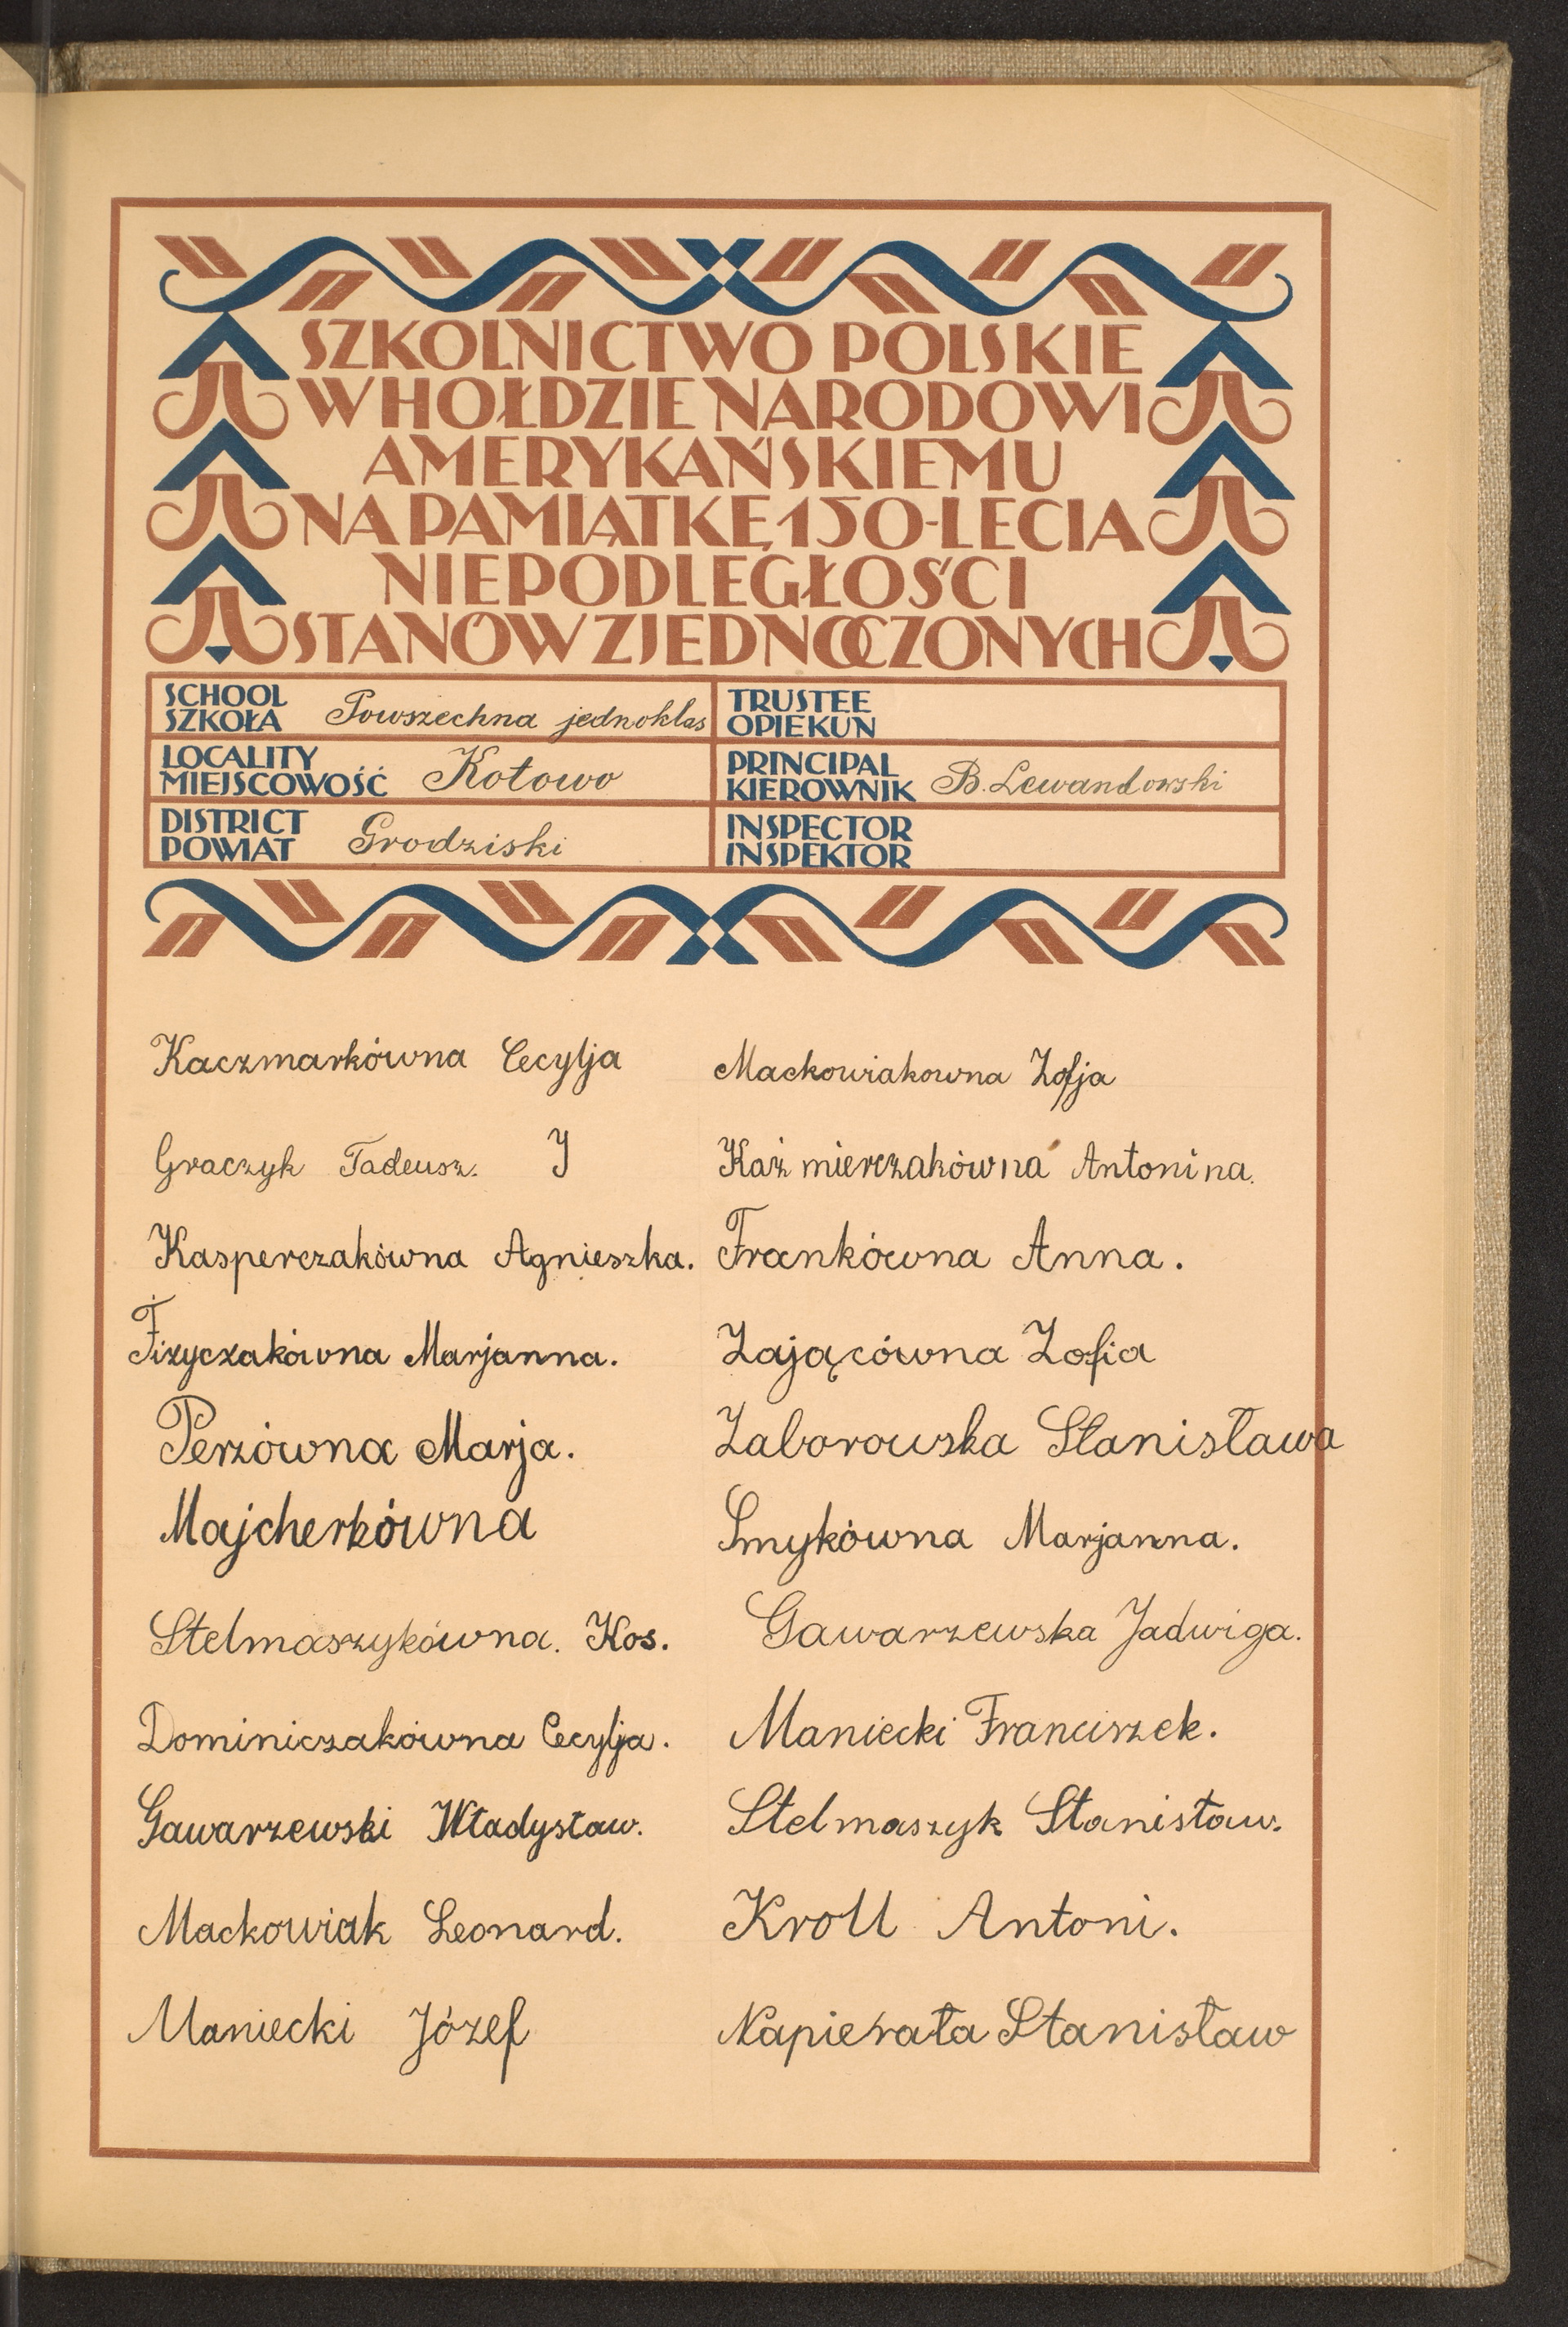 SZKOLNICTWO POLSKIE
W HOŁDZIE NARODOWI
AMERYKAŃSKIEMU
NA PAMIĄTKĘ 150-LECIA
NIEPODLEGŁOŚCI
STANÓW ZJEDNOCZONYCH
SCHOOL
SZKOŁA Powszechna jednoklas
TRUSTEE
OPIEKUN
LOCALITY
MIEJSCOWOŚĆ Kotowo
PRINCIPAL
KIEROWNIK B. Lewandowski
DISTRICT
POWIAT Grodziski
INSPECTOR
INSPEKTOR
Kaczmarkówna Cecylja
Graczyk Tadeusz. J
Kasperczakówna Agnieszka.
Fizyczakówna Marjanna.
Perzówna Marja.
Majcherkówna
Stelmaszykówna. Kos.
Dominiczakówna Cecylja.
Gawarzewski Władysław.
Mackowiak Leonard.
Maniecki Józef
Mackowiakowna Zofja
Kaźmierczakówna Antonina.
Frankówna Anna.
Zającówna Zofia
Zaborowska Stanisława
Smykówna Marjanna.
Gawarzewska Jadwiga.
Maniecki Franciszek.
Stelmaszyk Stanisław.
Kroll Antoni.
Napierała Stanisław